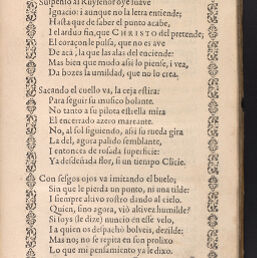 Suspenso al Ruyseñor oye suave
Ignacio: i aunque no la letra entiende;
Hasta que de saber el punto acabe,
I el arduo fin, que CHRISTO del pretende;
El coraçon le pulsa, que no es ave
De acà, la que las alas del enciende:
Mas bien que modo assi lo piense, i vea,
Da bozes la umildad, que no lo crea.
Sacando el cuello va, la ceja estira:
Para seguir su musico bolante.
No tanto a su pilota estrella mira
El encerrado azero mareante.
No, al sol siguiendo, assi su rueda gira
La del, agora palido semblante,
Entonces de rosada superficie:
Ya desdeñada flor, si un tiempo Clicie.
Con sesgos ojos va imitando el buelo;
Sin que le pierda un punto, ni una tilde:
I siempre altivo rostro dando al cielo.
Quien, sino agora, viò altivez humilde?
Si soys (le dize) nuncio en esse velo,
I a quien os despachò bolveis, dezilde:
Mas no; no se repita en son prolixo
Lo que mi pensamiento ya le dixo.